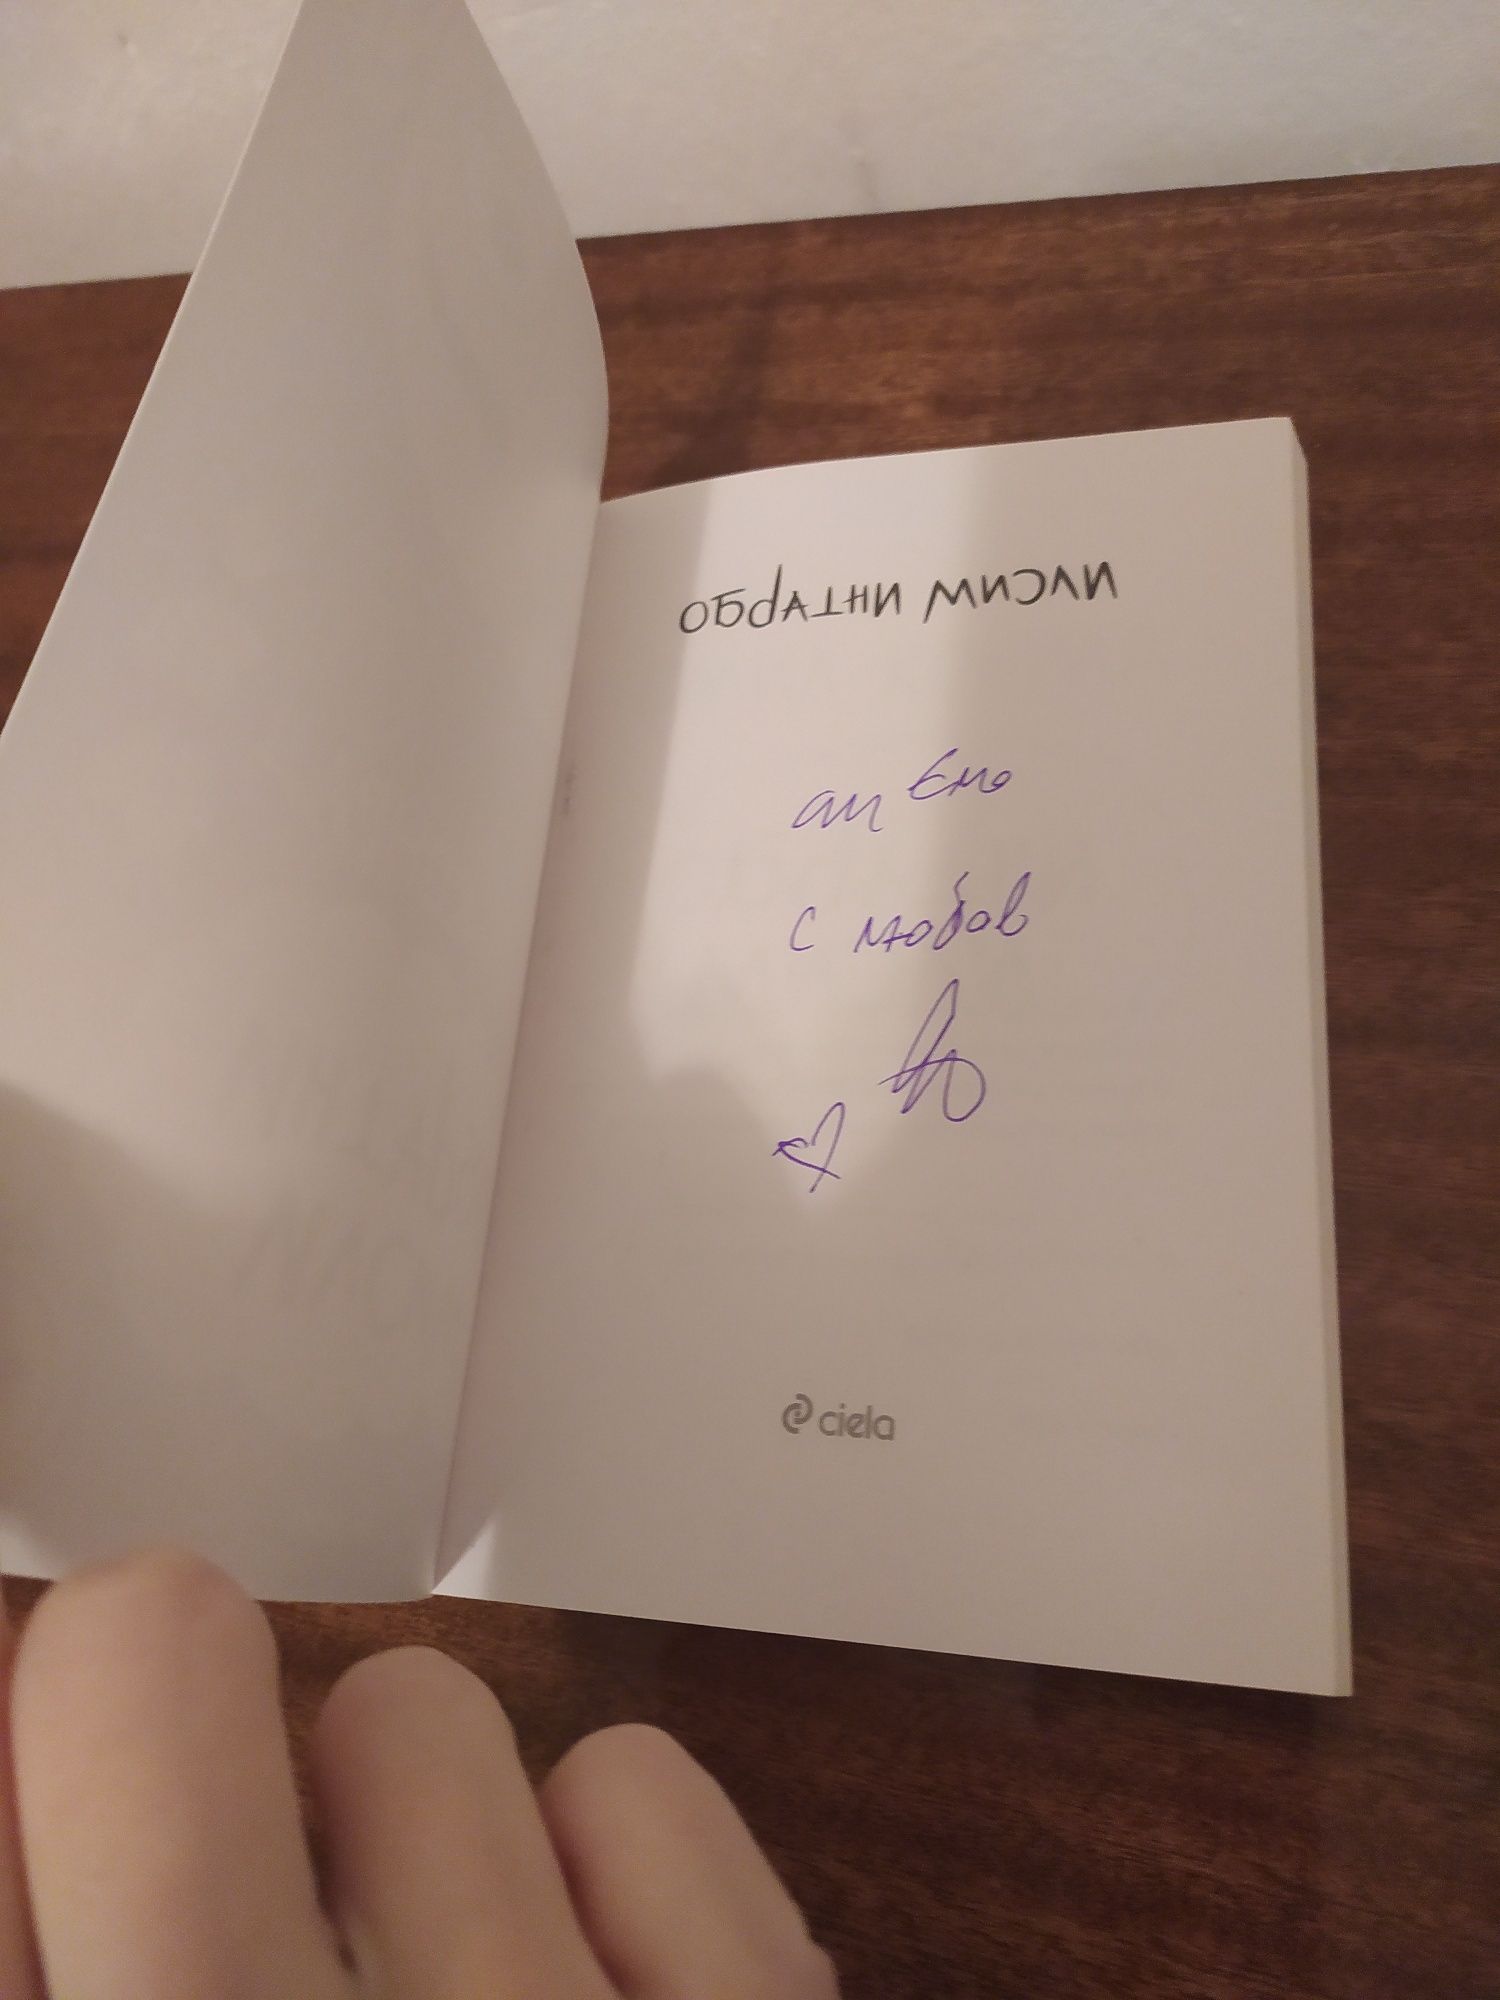 обратни мисли
с любов
ciela